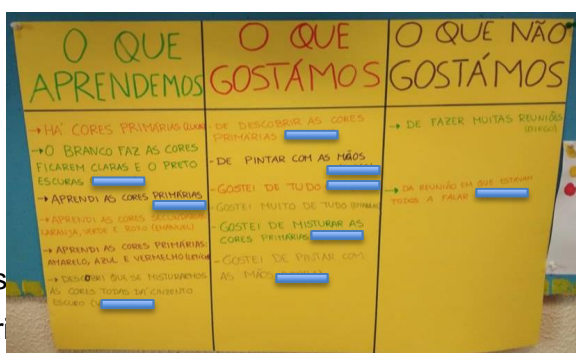 O QUE
APRENDEMOS
→ HÁ CORES PRIMÁRIAS
→ O BRANCO FAZ AS CORES
FICAREM CLARAS E O PRETO
ESCURAS
→ APRENDI AS CORES PRIMÁRIAS
→ APRENDI AS CORES SECUNDÁRIAS
LARANJA, VERDE E ROXO (EMANUEL)
→ APRENDI AS CORES PRIMÁRIAS:
AMARELO, AZUL E VERMELHO
→ DESCOBRI QUE SE MISTURARMOS
AS CORES TODAS DÁ CINZENTO
ESCURO
O QUE
GOSTÁMOS
- DE DESCOBRIR AS CORES
PRIMÁRIAS
- DE PINTAR COM AS MÃOS
- GOSTEI DE TUDO
- GOSTEI MUITO DE TUDO
- GOSTEI DE MISTURAR AS
CORES PRIMÁRIAS
- GOSTEI DE PINTAR COM
AS MÃOS
O QUE NÃO
GOSTÁMOS
→ DE FAZER MUITAS REUNIÕES
(DIEGO)
→ DA REUNIÃO EM QUE ESTAVAM
TODOS A FALAR